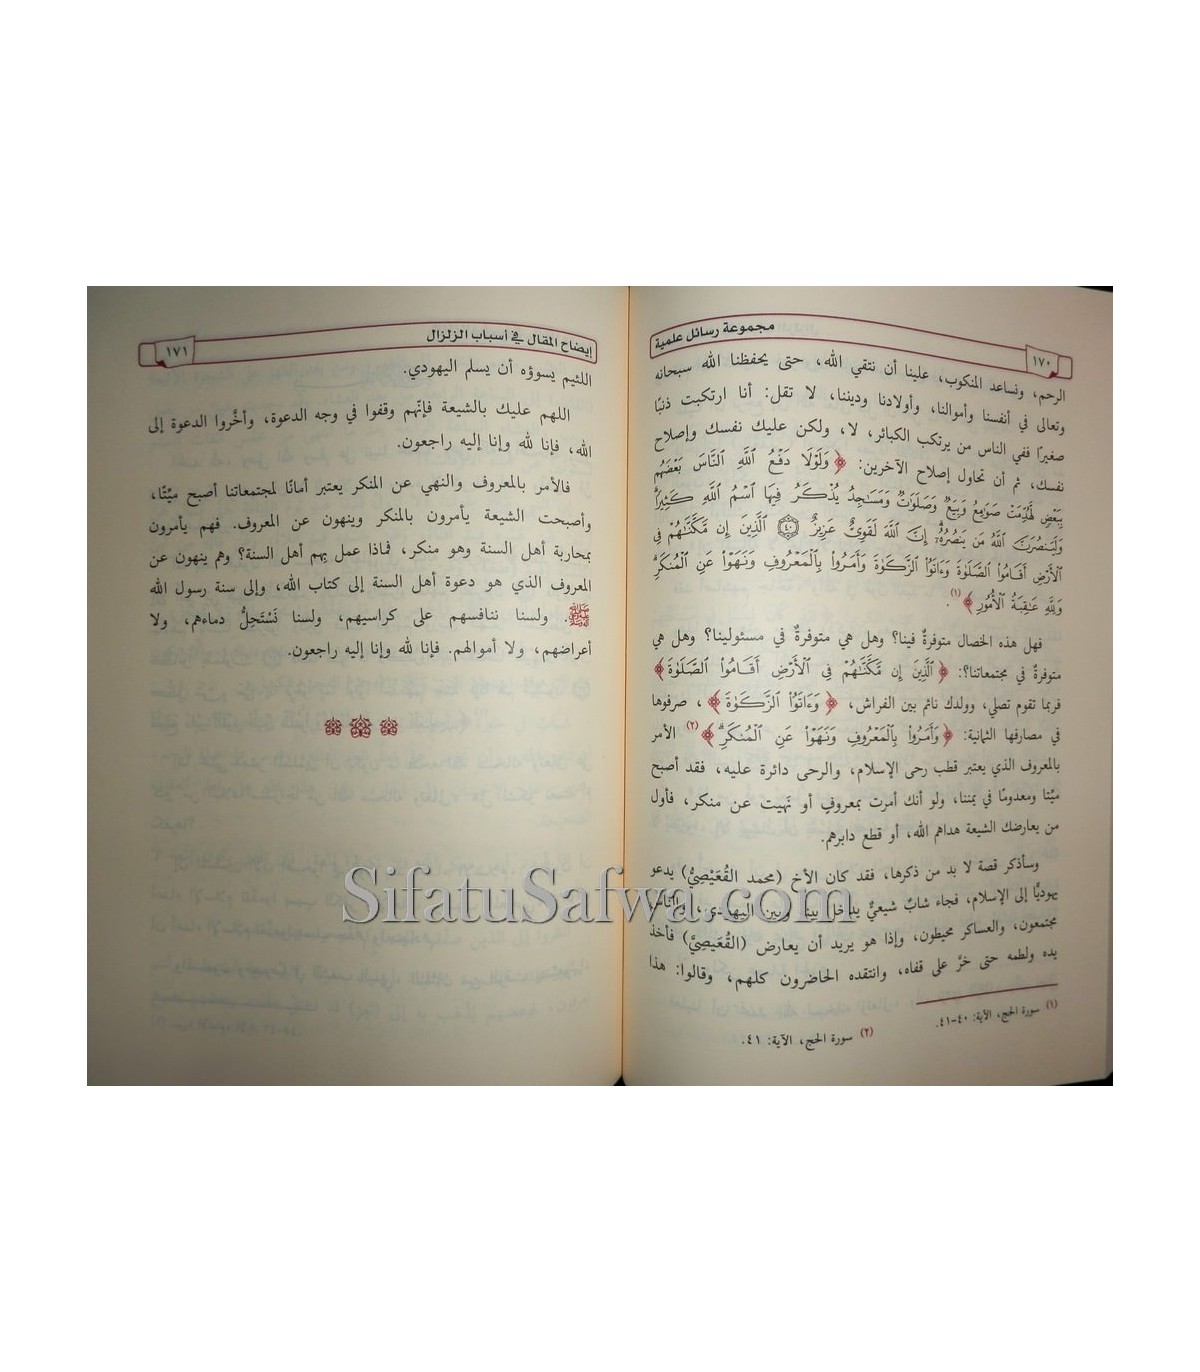 مجموعة رسائل علمية
١٧٠
الرحم، ونساعد المنكوب، علينا أن نتقي الله، حتى يحفظنا الله سبحانه
وتعالى في أنفسنا وأموالنا، وأولادنا وديننا، لا تقل: أنا ارتكبت ذنبًا
صغيرًا ففي الناس من يرتكب الكبائر، لا، ولكن عليك نفسك وإصلاح
نفسك، ثم أن تحاول إصلاح الآخرين: ﴿وَلَوْلَا دَفْعُ ٱللَّهِ ٱلنَّاسَ بَعْضَهُم
بِبَعْضٍ لَّهُدِّمَتْ صَوَٰمِعُ وَبِيَعٌ وَصَلَوَٰتٌ وَمَسَٰجِدُ يُذْكَرُ فِيهَا ٱسْمُ ٱللَّهِ كَثِيرًا ۗ
وَلَيَنصُرَنَّ ٱللَّهُ مَن يَنصُرُهُۥٓ ۗ إِنَّ ٱللَّهَ لَقَوِىٌّ عَزِيزٌ ٤٠ ٱلَّذِينَ إِن مَّكَّنَّٰهُمْ فِى
ٱلْأَرْضِ أَقَامُوا۟ ٱلصَّلَوٰةَ وَءَاتَوُا۟ ٱلزَّكَوٰةَ وَأَمَرُوا۟ بِٱلْمَعْرُوفِ وَنَهَوْا۟ عَنِ ٱلْمُنكَرِ ۗ
وَلِلَّهِ عَٰقِبَةُ ٱلْأُمُورِ﴾(١).
فهل هذه الخصال متوفرةٌ فينا؟ وهل هي متوفرةٌ في مسئولينا؟ وهل هي
متوفرةٌ في مجتمعاتنا؟: ﴿ٱلَّذِينَ إِن مَّكَّنَّٰهُمْ فِى ٱلْأَرْضِ أَقَامُوا۟ ٱلصَّلَوٰةَ﴾
فربما تقوم تصلي، وولدك نائم بين الفراش، ﴿وَءَاتَوُا۟ ٱلزَّكَوٰةَ﴾، صرفوها
في مصارفها الثمانية: ﴿وَأَمَرُوا۟ بِٱلْمَعْرُوفِ وَنَهَوْا۟ عَنِ ٱلْمُنكَرِ ۗ﴾(٢) الأمر
بالمعروف الذي يعتبر قطب رحى الإسلام، والرحى دائرة عليه، فقد أصبح
ميّتا ومعدومًا في يمننا، ولو أنك أمرت بمعروفٍ أو نَهيت عن منكر، فأول
من يعارضك الشيعة هداهم الله، أو قطع دابرهم.
وسأذكر قصة لا بد من ذكرها، فقد كان الأخ (محمد القُعَيْصِيُّ) يدعو
يهوديًّا إلى الإسلام، فجاء شابٌ شيعيٌّ يدخل بينه وبين اليهودي، والناس
مجتمعون، والعساكر محيطون، وإذا هو يريد أن يعارض (القُعَيصِيَّ) فأخذ
يده ولطمه حتى خرَّ على قفاه، وانتقده الحاضرون كلهم، وقالوا: هذا
(١) سورة الحج، الآية: ٤٠-٤١.
(٢) سورة الحج، الآية: ٤١.
إيضاح المقال في أسباب الزلزال
١٧١
اللئيم يسوؤه أن يسلم اليهودي.
اللهم عليك بالشيعة فإنّهم وقفوا في وجه الدعوة، وأخَّروا الدعوة إلى
الله، فإنا لله وإنا إليه راجعون.
فالأمر بالمعروف والنهي عن المنكر يعتبر أمانًا لمجتمعاتنا أصبح ميّتًا،
وأصبحت الشيعة يأمرون بالمنكر وينهون عن المعروف. فهم يأمرون
بمحاربة أهل السنة وهو منكر، فماذا عمل بِهم أهل السنة؟ وهم ينهون عن
المعروف الذي هو دعوة أهل السنة إلى كتاب الله، وإلى سنة رسول الله
ﷺ. ولسنا ننافسهم على كراسيهم، ولسنا نَسْتَحِلُّ دماءهم، ولا
أعراضهم، ولا أموالهم. فإنا لله وإنا إليه راجعون.
SifatuSafwa.com